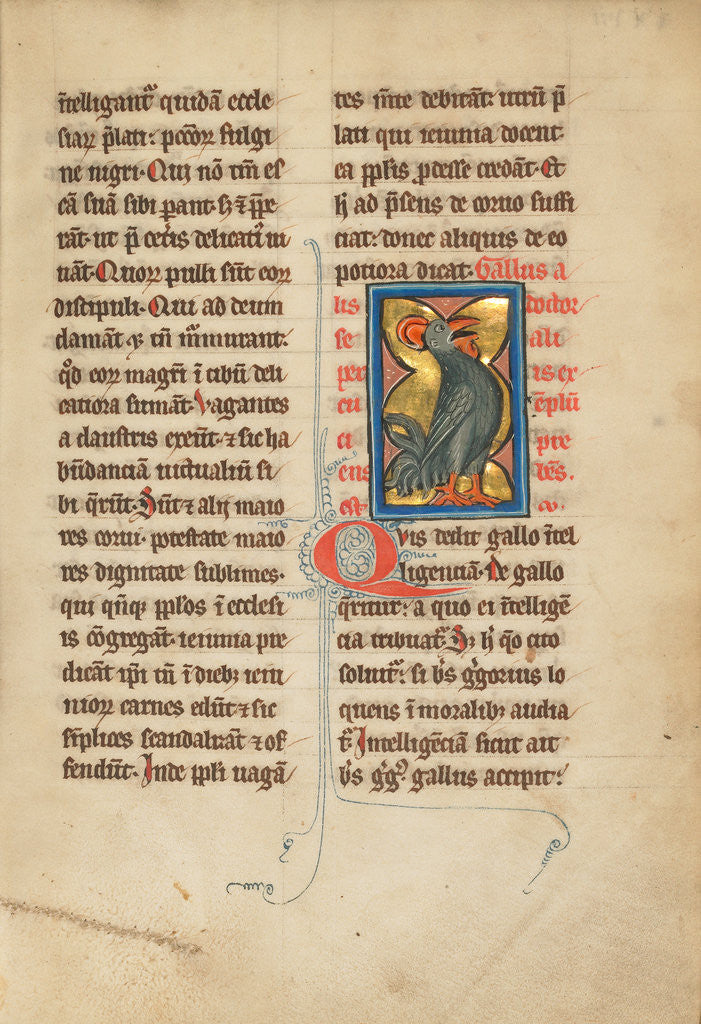 ītelligant᷑ quidā eccle
siaꝝ p̄lati: pccōꝝ fulgi
ne nigri. Qui nō tm̄ es
cā suā sibi parant. sꝫ ⁊ p̄pe
rāt. ut p̄ cet̄is delicati᷑ ui
uāt. Quoꝝ pulli sūt eoꝝ
discipuli. Qui ad deum
clamāt ⁊ tn̄ m̄murant.
qd̓ eoꝝ magr̄i ī cibū deli
catiora sumāt. Vagantes
a claustris exeūt. ⁊ sic ha
būdanciā uictualiū si
bi q̄rūt. Sūt ⁊ alij maio
res corui. potestate maio
res dignitate sublimes.
qui qn̄qꝫ ppl̄os ī eccle̅si
is cōgregāt. ieiunia pre
dicāt ip̄i tn̄ ī diebꝫ ieiu
nioꝝ carnes edūt ⁊ sic
sīplices scandalizāt ⁊ of
fendūt. Inde ppl̄i uagā
tes īn̄te debitāt: utrū p̄
lati qui ieiunia docent
ea ppl̄is ꝓdesse credāt. Et
h̄ ad p̄sens de coruo suffi
ciat: donec aliquis de eo
potiora dicat. Gallus a
lis doctor
se ali
per is ex
cu ēplū
ci pre
ens bēs.
est
Quis dedit gallo ītel
ligenciā. De gallo
q̄ritur: a quo ei ītelligē
cia tribuat᷑. Sꝫ h̄ q̄o cito
soluit᷑: si bs̄ g̓gorius lo
quens ī moralibꝫ audia
t᷑. Intelligēciā sicut ait
bs̄ g̓g᷒. gallus accipit: